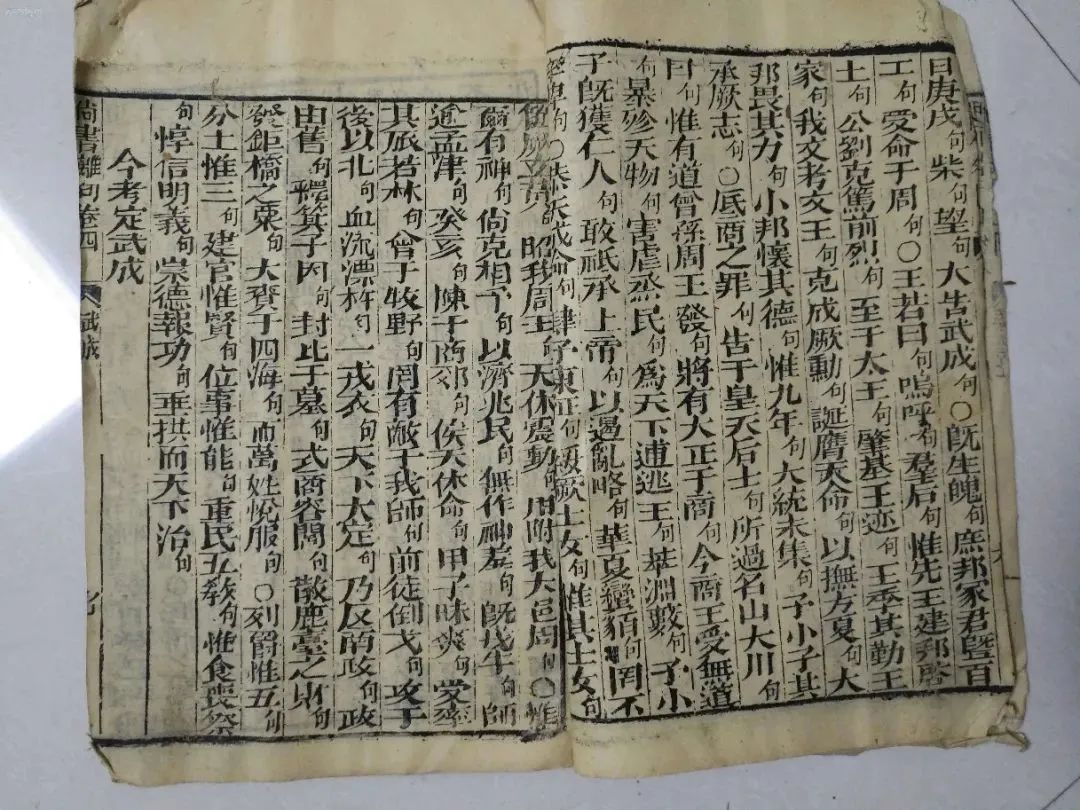 日庚戌句柴句望句大告武成句○既生魄句庶邦冢君暨百
工句受命于周句○王若曰句嗚呼句羣后句惟先王建邦啓
土句公劉克篤前烈句至于太王句肇基王迹句王季其勤王
家句我文考文王句克成厥勳句誕膺天命句以撫方夏句大
邦畏其力句小邦懷其德句惟九年句大統未集句予小子其
承厥志句○底商之罪句告于皇天后土句所過名山大川句
曰句惟有道曾孫周王發句將有大正于商句今商王受無道
句暴殄天物句害虐烝民句爲天下逋逃王句萃淵藪句予小
子既獲仁人句敢祇承上帝句以遏亂略句華夏蠻貊句罔不
句○恭天成命句肆予東征句綏厥士女句惟其士女句
篚厥玄黃句昭我周王句天休震動句用附我大邑周句○惟
爾有神句尚克相予句以濟兆民句無作神羞句既戊午句師
逾孟津句癸亥句陳于商郊句俟天休命句甲子昧爽句受率
其旅若林句會于牧野句罔有敵于我師句前徒倒戈句攻于
後以北句血流漂杵句一戎衣句天下大定句乃反商政句政
由舊句釋箕子囚句封比干墓句式商容閭句散鹿臺之財句
發鉅橋之粟句大賚于四海句而萬姓悅服句○列爵惟五句
分土惟三句建官惟賢句位事惟能句重民五教句惟食喪祭
句惇信明義句崇德報功句垂拱而天下治句
今考定武成
尚書離句卷四 武成